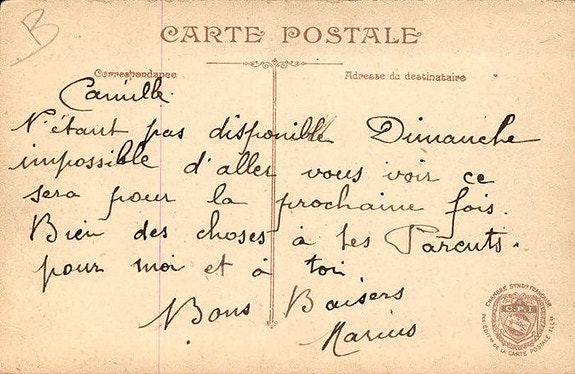 B
CARTE POSTALE
Correspondance
Adresse du destinataire
Camille.
N'étant pas disponible Dimanche
impossible d'aller vous voir ce
sera pour la prochaine fois.
Bien des choses à tes Parents.
pour moi et à toi
Bons Baisers
Marius
CHAMBRE SYNDle FRANÇAISE
DES ÉDITrs DE LA CARTE POSTALE ILLée